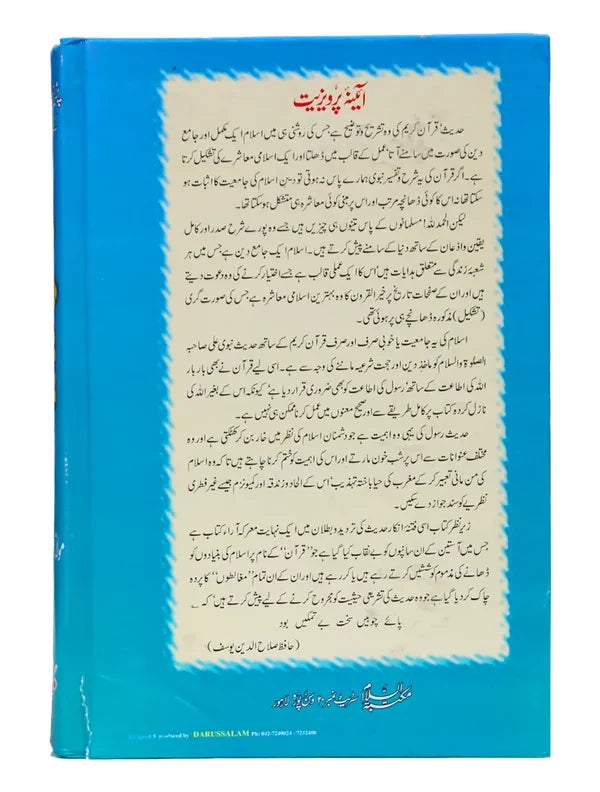 آئینۂ پرویزیت
حدیث‘ قرآن کریم کی وہ تشریح و توضیح ہے جس کی روشنی ہی میں اسلام ایک مکمل اور جامع
دین کی صورت میں سامنے آتا‘ عمل کے قالب میں ڈھلتا اور ایک اسلامی معاشرے کی تشکیل کرتا
ہے۔ اگر قرآن کی یہ شرح و تفسیر نبوی ہمارے پاس نہ ہوتی تو دین اسلام کی جامعیت کا اثبات ہو
سکتا تھا نہ اس کا کوئی ڈھانچہ مرتب اور اس پر مبنی کوئی معاشرہ ہی متشکل ہو سکتا تھا۔
لیکن الحمدللہ! مسلمانوں کے پاس تینوں ہی چیزیں ہیں جسے وہ پورے شرح صدر اور کامل
یقین و اذعان کے ساتھ دنیا کے سامنے پیش کرتے ہیں۔ اسلام ایک جامع دین ہے جس میں ہر
شعبۂ زندگی سے متعلق ہدایات ہیں‘ اس کا ایک عملی قالب ہے جسے اختیار کرنے کی وہ دعوت دیتے
ہیں اور ان کے صفحات تاریخ پر خیر القرون کا وہ بہترین اسلامی معاشرہ ہے جس کی صورت گری
(تشکیل) مذکورہ ڈھانچے ہی پر ہوئی تھی۔
اسلام کی یہ جامعیت یا خوبی صرف اور صرف قرآن کریم کے ساتھ حدیث نبوی علی صاحبہ
الصلوۃ والسلام کو ماخذ دین اور حجت شرعیہ ماننے کی وجہ سے ہے۔ اسی لیے قرآن نے بھی بار بار
اللہ کی اطاعت کے ساتھ‘ رسول کی اطاعت کو بھی ضروری قرار دیا ہے‘ کیونکہ اس کے بغیر اللہ کی
نازل کردہ کتاب پر کامل طریقے سے اور صحیح معنوں میں عمل کرنا ممکن ہی نہیں ہے۔
حدیث رسول کی یہی وہ اہمیت ہے جو دشمنان اسلام کی نظر میں خار بن کر کھٹکتی ہے اور وہ
مختلف عنوانات سے اس پر شب خون مارتے اور اس کی اہمیت کو ختم کرنا چاہتے ہیں تاکہ وہ اسلام
کی من مانی تعبیر کر کے مغرب کی حیا باختہ تہذیب‘ اس کے الحاد و زندقہ اور کمیونزم جیسے غیر فطری
نظریے کو سند جواز دے سکیں۔
زیر نظر کتاب اسی فتنۂ انکار حدیث کی تردید و بطلان میں ایک نہایت معرکہ آراء کتاب ہے
جس میں آستین کے ان سانپوں کو بے نقاب کیا گیا ہے جو ’’قرآن‘‘ کے نام پر اسلام کی بنیادوں کو
ڈھانے کی مذموم کوششیں کرتے رہے ہیں یا کر رہے ہیں اور ان کے ان تمام ’’مغالطوں‘‘ کا پردہ
چاک کر دیا گیا ہے جو وہ حدیث کی تشریعی حیثیت کو مجروح کرنے کے لیے پیش کرتے ہیں‘ کہ ؎
پائے چوبیں سخت بے تمکیں بود
(حافظ صلاح الدین یوسف)
مکتبہ السلام سٹریٹ نمبر ۲۰ وسن پورہ لاہور
produced by DARUSSALAM Ph: 042-7240024 - 7232400